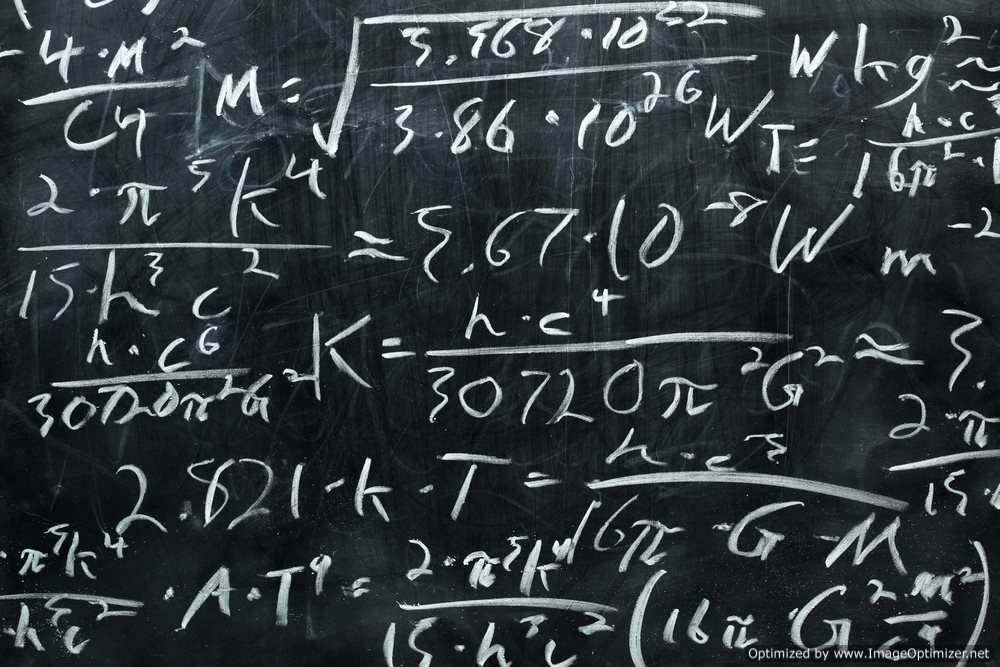 4·M²/C4 M = √(3.568·10³²/3.86·10²⁶ W) W kg² ≈
T = h·c/16π²·
2·π⁵k⁴/15·h³c² ≈ 5.67·10⁻⁸ W m⁻²
h·c⁶/30720π²G² K = h·c⁴/30720π²G² ≈ 3.
2·π/15·
2.821·k·T = h·c³/16π·G·M
·π⁵k⁴/·h³c² ·A·T⁹ = 2·π⁵k⁴/15·h³c² (16π·G²·m²/c⁴)
Optimized by www.ImageOptimizer.net